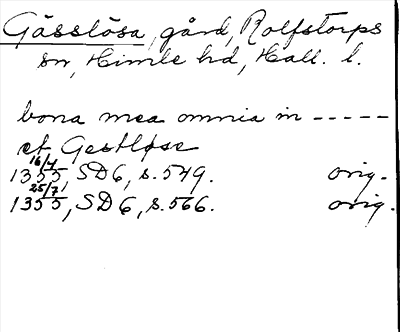 Gässlösa, gård, Rolfstorps
sn, Himle hd, Hall. l.
bona mea omnia in -----
et Gestløse
16/4
1355, SD6, s. 549. orig.
25/7
1355, SD6, s. 566. orig.